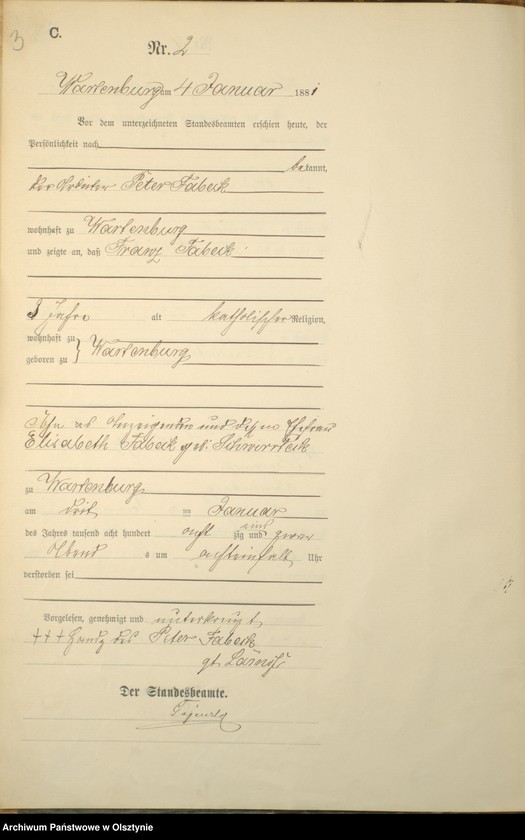 3
C.
Nr. 2
Wartenburg am 4 Januar 1881
Vor dem unterzeichneten Standesbeamten erschien heute, der
Persönlichkeit nach
bekannt,
der Arbeiter Peter Fabeck
wohnhaft zu Wartenburg
und zeigte an, daß Franz Fabeck
3 Jahre alt katholischer Religion,
wohnhaft zu
geboren zu } Wartenburg
Sohn des Anzeigenden und dessen Ehefrau
Elisabeth Fabeck geb:
zu Wartenburg
am drit im Januar
des Jahres tausend acht hundert acht zig und ein und zwar
Abend s um achteinhalb Uhr
verstorben sei
Vorgelesen, genehmigt und unterkreuzt
+++ Handz des Peter Fabeck
Der Standesbeamte.
Archiwum Państwowe w Olsztynie